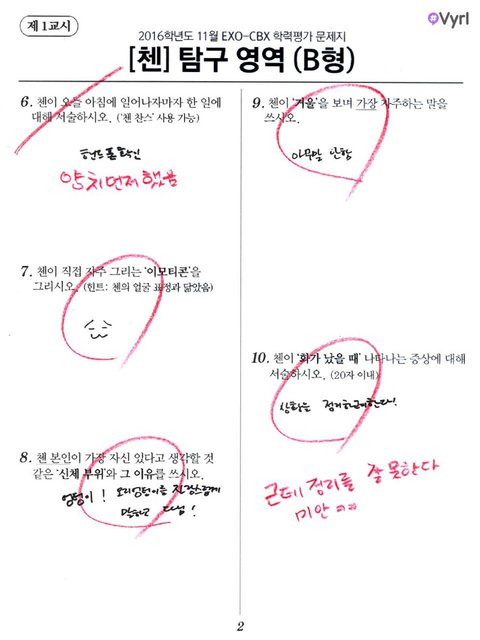 제 1교시
Vyrl
2016학년도 11월 EXO-CBX 학력평가 문제지
[첸] 탐구 영역 (B형)
6. 첸이 오늘 아침에 일어나자마자 한 일에
대해 서술하시오. ('첸 찬스' 사용 가능)
핸드폰 확인
양치먼저 했음
7. 첸이 직접 자주 그리는 '이모티콘'을
그리시오. (힌트: 첸의 얼굴 표정과 닮았음)
8. 첸 본인이 가장 자신 있다고 생각할 것
같은 '신체 부위'와 그 이유를 쓰시오.
엉덩이! 오리엉덩이를 자랑스럽게
말하고 다님!
9. 첸이 '거울'을 보며 가장 자주하는 말을
쓰시오.
아무말 안함
10. 첸이 '화가 났을 때' 나타나는 증상에 대해
서술하시오. (20자 이내)
상황을 정리하려한다!
근데 정리를 잘 못한다
미안 ㅠㅠ
2